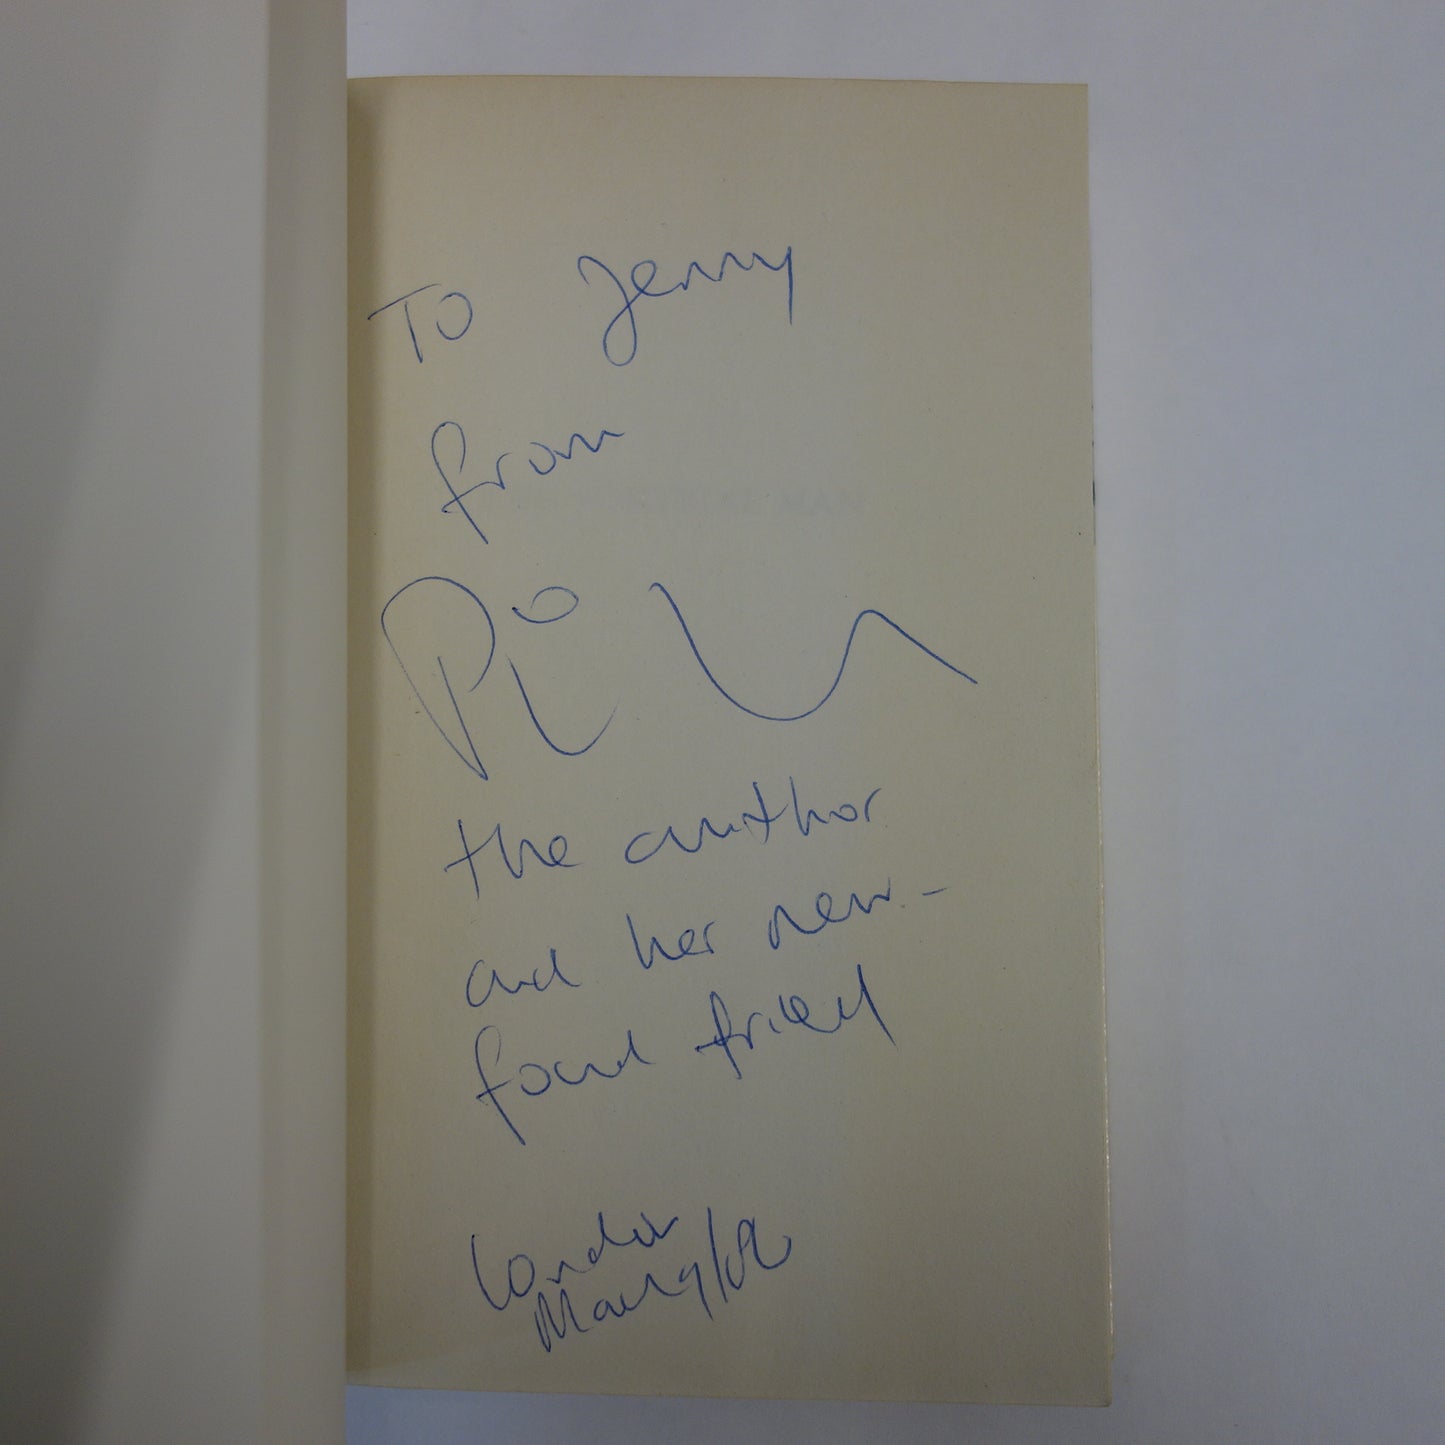 To Jenny
from
the author
and her new-
found friend
London
MAN